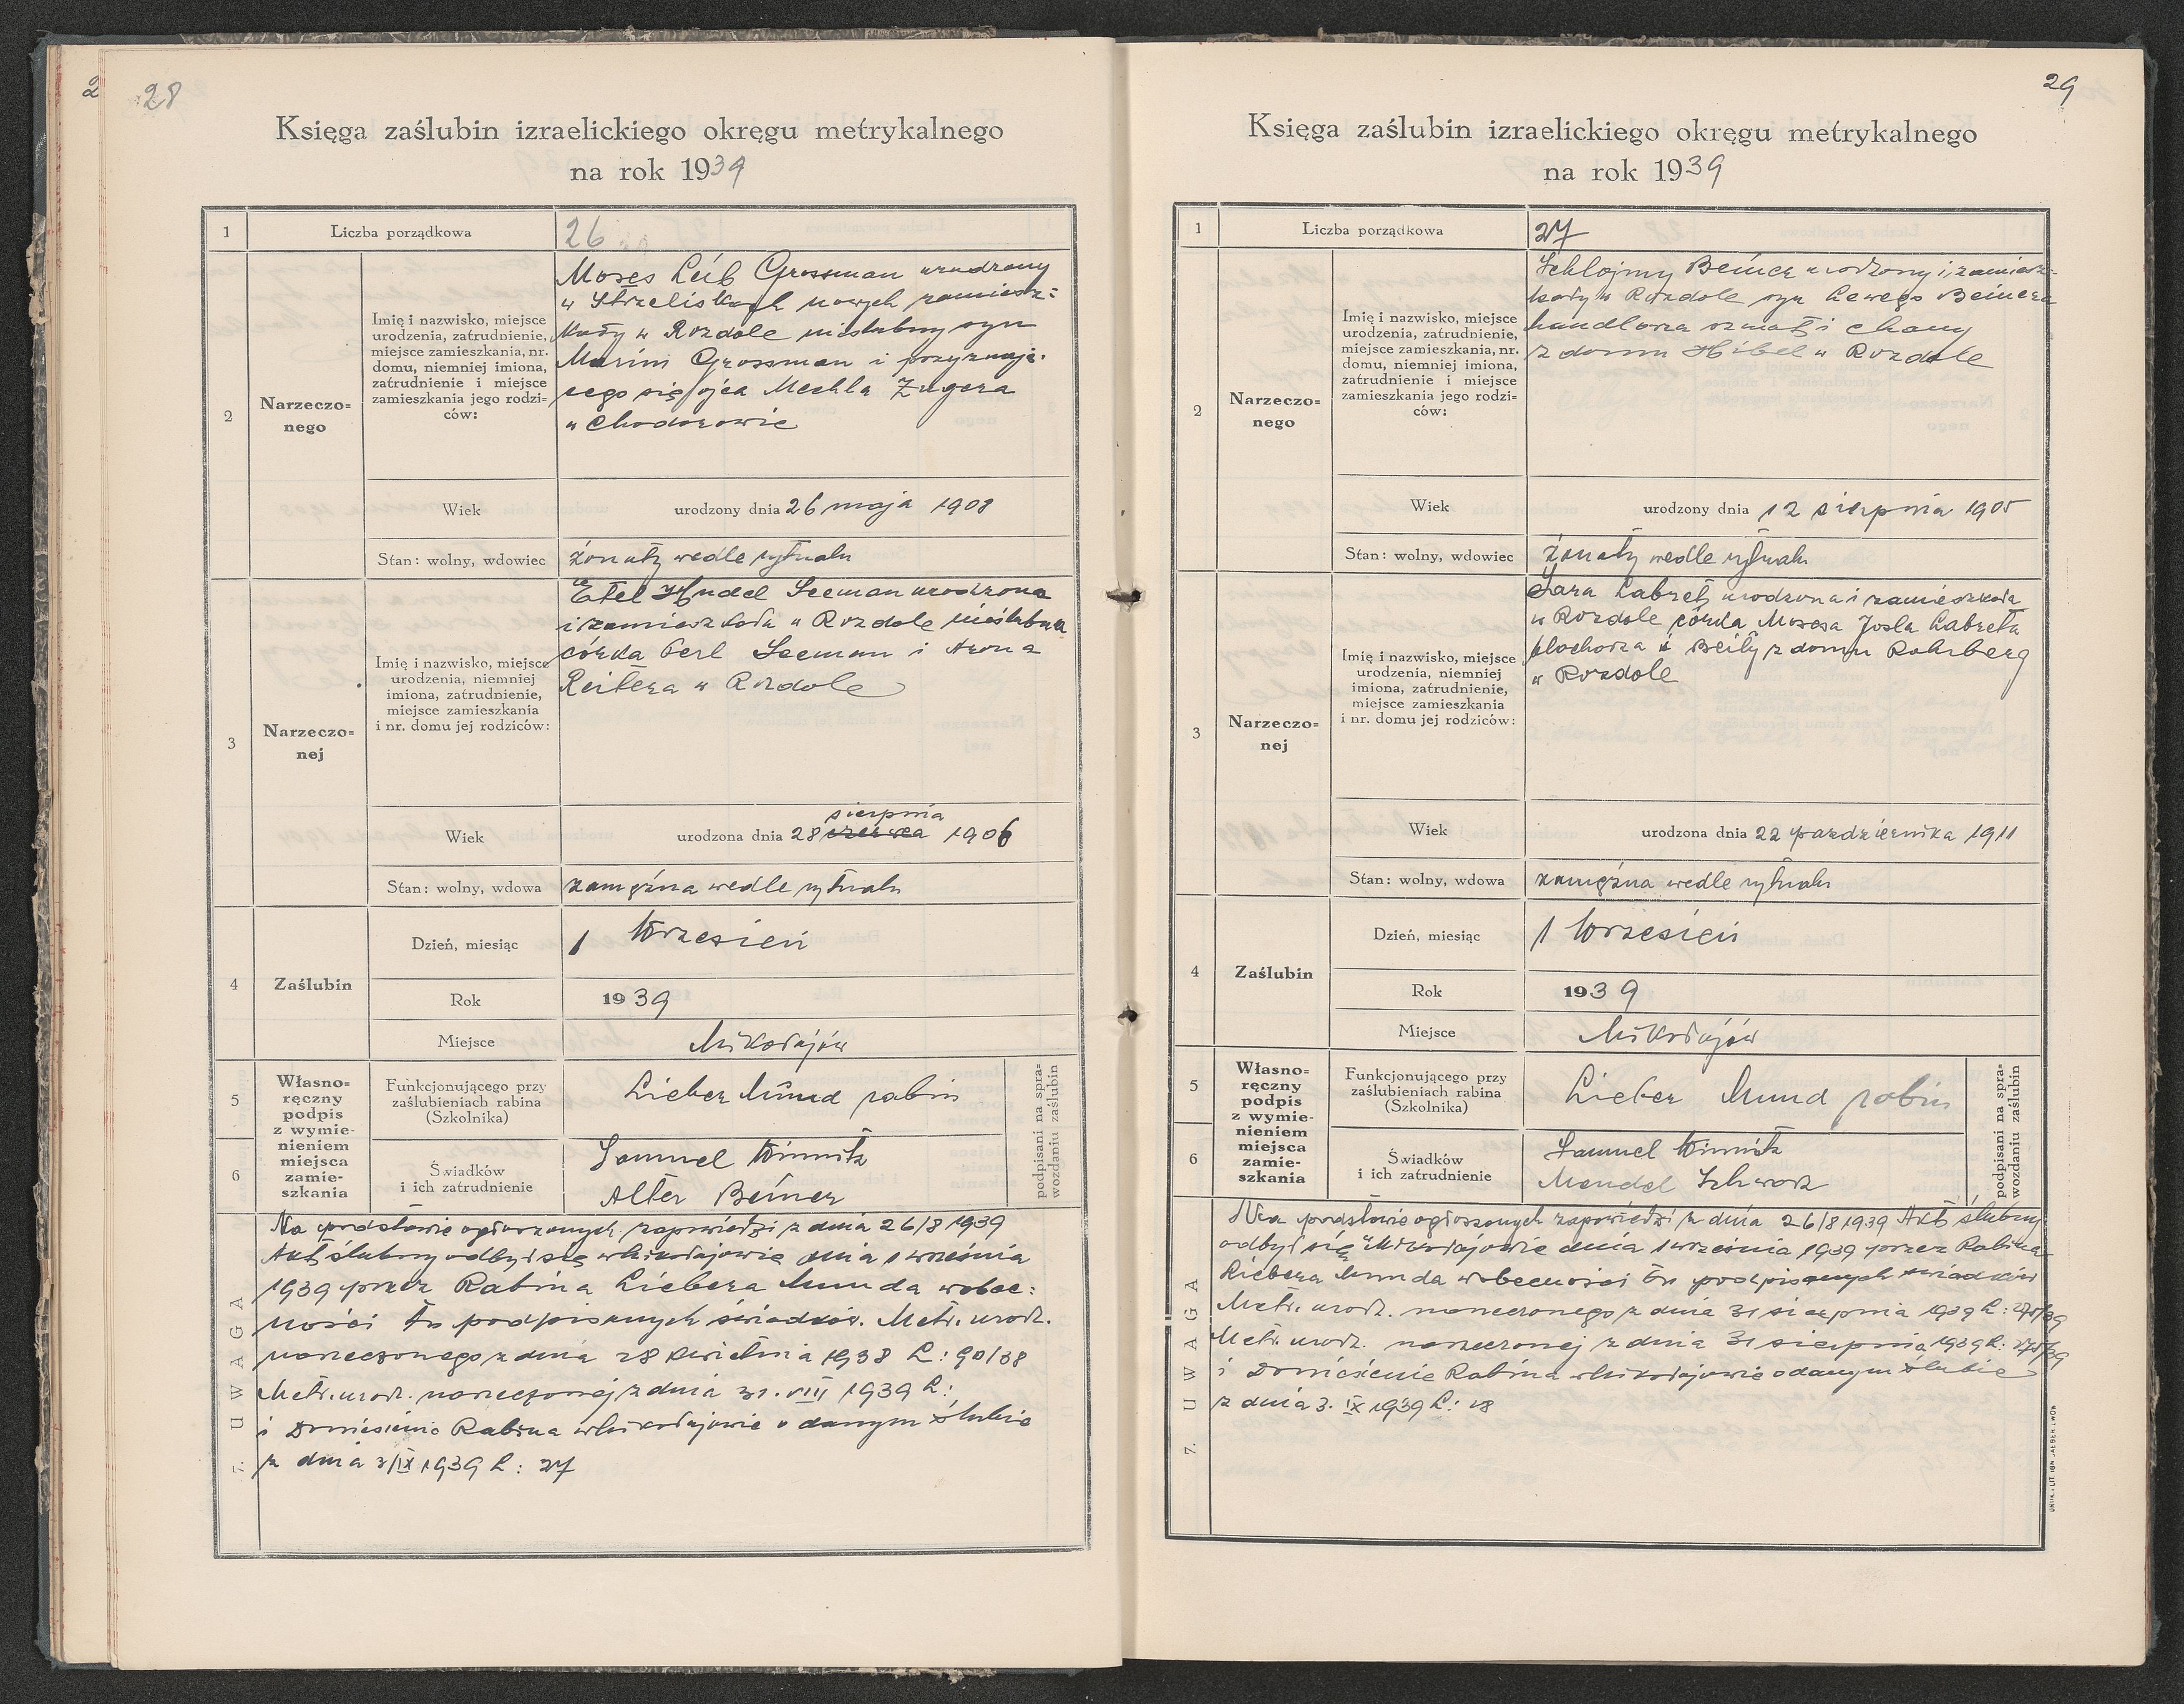 2
28
Księga zaślubin izraelickiego okręgu metrykalnego
na rok 1939
1
Liczba porządkowa
26
2
Narzeczo=
nego
Imię i nazwisko, miejsce
urodzenia, zatrudnienie,
miejsce zamieszkania, nr.
domu, niemniej imiona,
zatrudnienie i miejsce
zamieszkania jego rodzi=
ców:
Moses Leib Grossman urodzony
w Strzeliskach nowych zamiesz=
kały w Rozdole nieślubny syn
Marim Grossman i przyznają=
cego się ojca Mechla Zugera
w Chodorowie
Wiek
urodzony dnia 26 maja 1908
Stan: wolny, wdowiec
żonaty wedle rytuału
3
Narzeczo=
nej
Imię i nazwisko, miejsce
urodzenia, niemniej
imiona, zatrudnienie,
miejsce zamieszkania
i nr. domu jej rodziców:
Etel Hudel Seeman urodzona
i zamieszkała w Rozdole nieślubna
córka Perl Seeman i Arona
Reitera w Rozdole
Wiek
sierpnia
urodzona dnia 28 czerwca 1906
Stan: wolny, wdowa
zamężna wedle rytuału
4
Zaślubin
Dzień, miesiąc
1 Wrzesień
Rok
1939
Miejsce
Mikołajów
5
6
Własno=
ręczny
podpis
z wymie-
nieniem
miejsca
zamie-
szkania
Funkcjonującego przy
zaślubieniach rabina
(Szkolnika)
Lieber Mund rabin
Świadków
i ich zatrudnienie
Samuel Winnitz
Alter Beiner
podpisani na spra=
wozdaniu zaślubin
7. UWAGA
Na podstawie ogłoszonych zapowiedzi z dnia 26/8 1939
Akt ślubny odbył się w Mikołajowie dnia 1 września
1939 przez Rabina Liebera Munda wobec=
ności tu podpisanych świadków. Metr. urodz.
narzeczonego z dnia 28 kwietnia 1938 L: 90/38
Metr. urodz. narzeczonej z dnia 31. VIII 1939 L:
i Doniesienie Rabina w Mikołajowie o danym ślubie
z dnia 3/IX 1939 L: 27
29
Księga zaślubin izraelickiego okręgu metrykalnego
na rok 1939
1
Liczba porządkowa
27
2
Narzeczo=
nego
Imię i nazwisko, miejsce
urodzenia, zatrudnienie,
miejsce zamieszkania, nr.
domu, niemniej imiona,
zatrudnienie i miejsce
zamieszkania jego rodzi=
ców:
Schlojmy Beiner urodzony i zamiesz=
kały w Rozdole syn Lewego Beinera
handlarza szmat i Chany
z domu Hibel w Rozdole
Wiek
urodzony dnia 12 sierpnia 1905
Stan: wolny, wdowiec
żonaty wedle rytuału
3
Narzeczo=
nej
Imię i nazwisko, miejsce
urodzenia, niemniej
imiona, zatrudnienie,
miejsce zamieszkania
i nr. domu jej rodziców:
Sara Labret urodzona i zamieszkała
w Rozdole córka Mosesa Josla Labreta
blacharza i Beily z domu Rohrberg
w Rozdole
Wiek
urodzona dnia 22 października 1911
Stan: wolny, wdowa
zamężna wedle rytuału
4
Zaślubin
Dzień, miesiąc
1 Wrzesień
Rok
1939
Miejsce
Mikołajów
5
6
Własno=
ręczny
podpis
z wymie-
nieniem
miejsca
zamie-
szkania
Funkcjonującego przy
zaślubieniach rabina
(Szkolnika)
Lieber Mund rabin
Świadków
i ich zatrudnienie
Samuel Winnitz
Mendel Schwarz
podpisani na spra=
wozdaniu zaślubin
7. UWAGA
Na podstawie ogłoszonych zapowiedzi z dnia 26/8 1939 Akt ślubny
odbył się w Mikołajowie dnia 1 września 1939 przez Rabina
Liebera Munda wobecności tu podpisanych świadków
Metr. urodz. narzeczonego z dnia 31 sierpnia 1939 L:
Metr. urodz. narzeczonej z dnia 31 sierpnia 1939 L:
i Doniesienie Rabina w Mikołajowie o danym ślubie
z dnia 3. IX 1939 L: 28